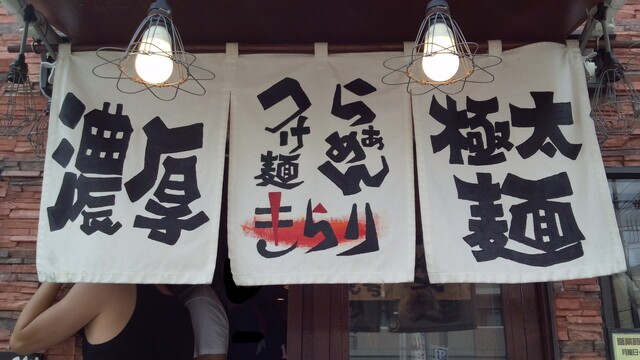 濃厚
らぁめん
つけ麺
きらり
極太
麺